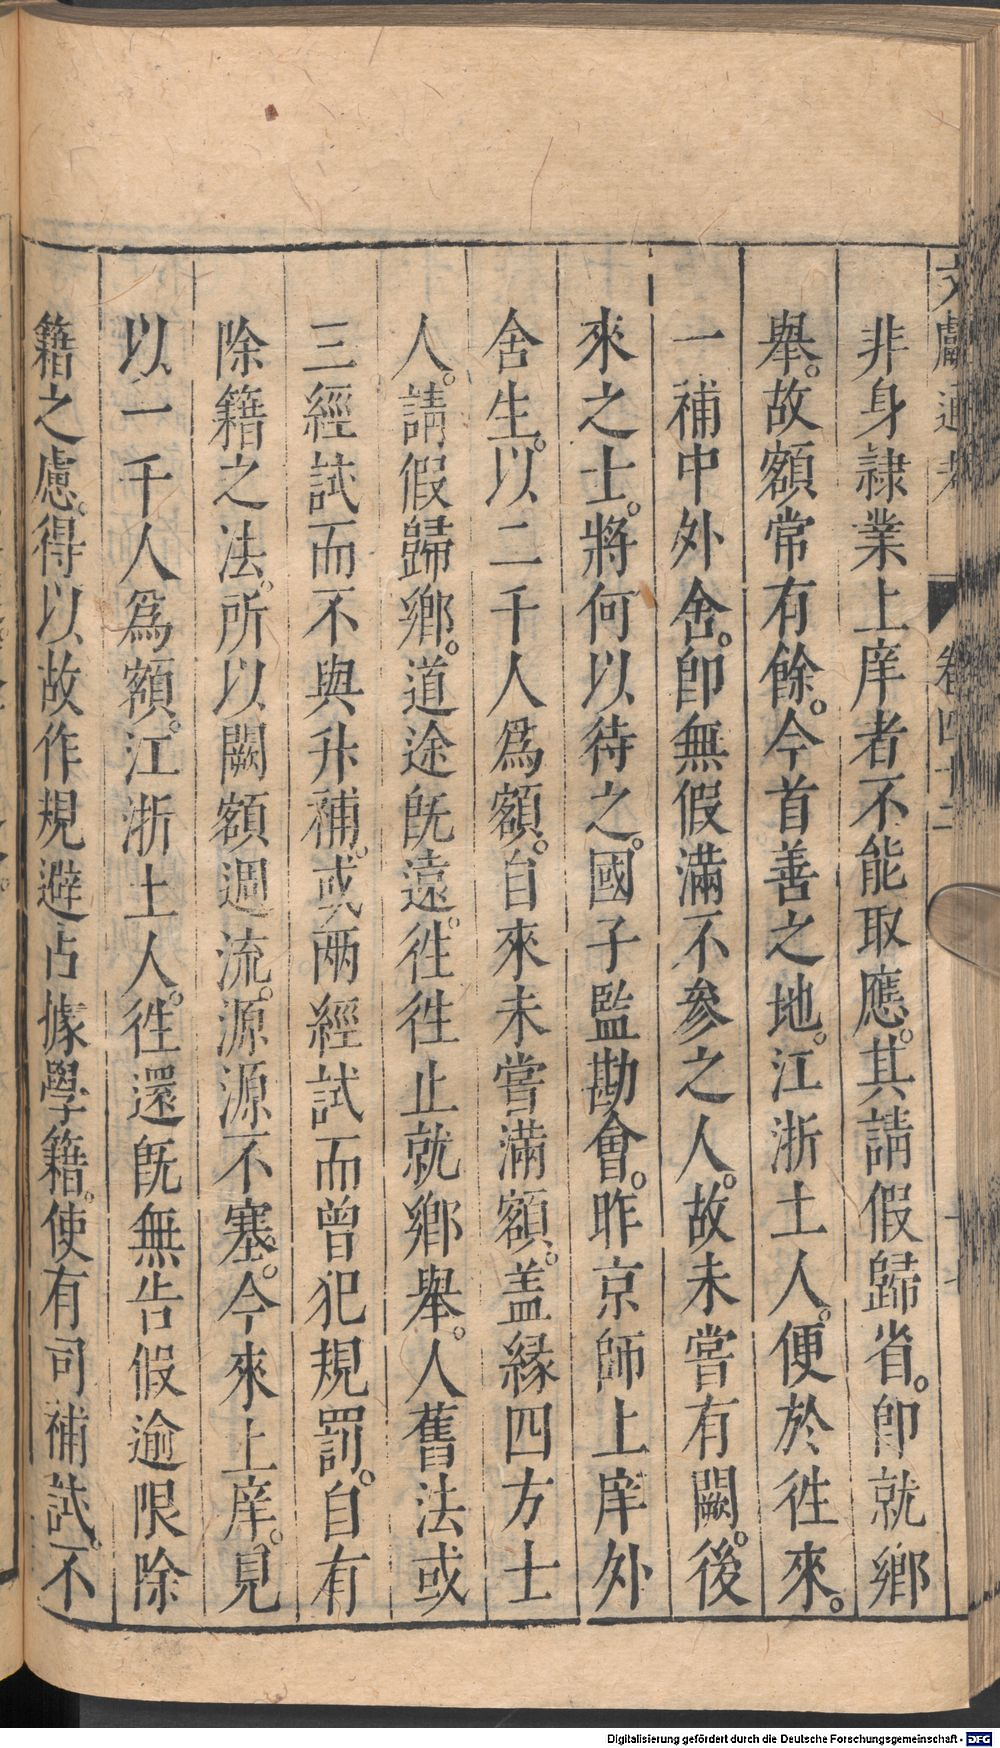 文獻通考 卷四十二 十七
非身隸業上庠者不能取應。其請假歸省。卽就鄉
舉。故額常有餘。今首善之地。江浙士人。便於徃來。
一補中外舍。卽無假滿不參之人。故未嘗有闕。後
來之士。將何以待之。國子監勘會。昨京師上庠外
舍生。以二千人爲額。自來未嘗滿額。盖緣四方士
人。請假歸鄉。道途旣遠。徃徃止就鄉舉。人舊法或
三經試而不與升補。或兩經試而曾犯規罰。自有
除籍之法。所以闕額週流。源源不塞。今來上庠。見
以一千人爲額。江浙士人。徃還旣無告假逾限除
籍之慮。得以故作規避占據學籍。使有司補試。不
Digitalisierung gefördert durch die Deutsche Forschungsgemeinschaft - DFG